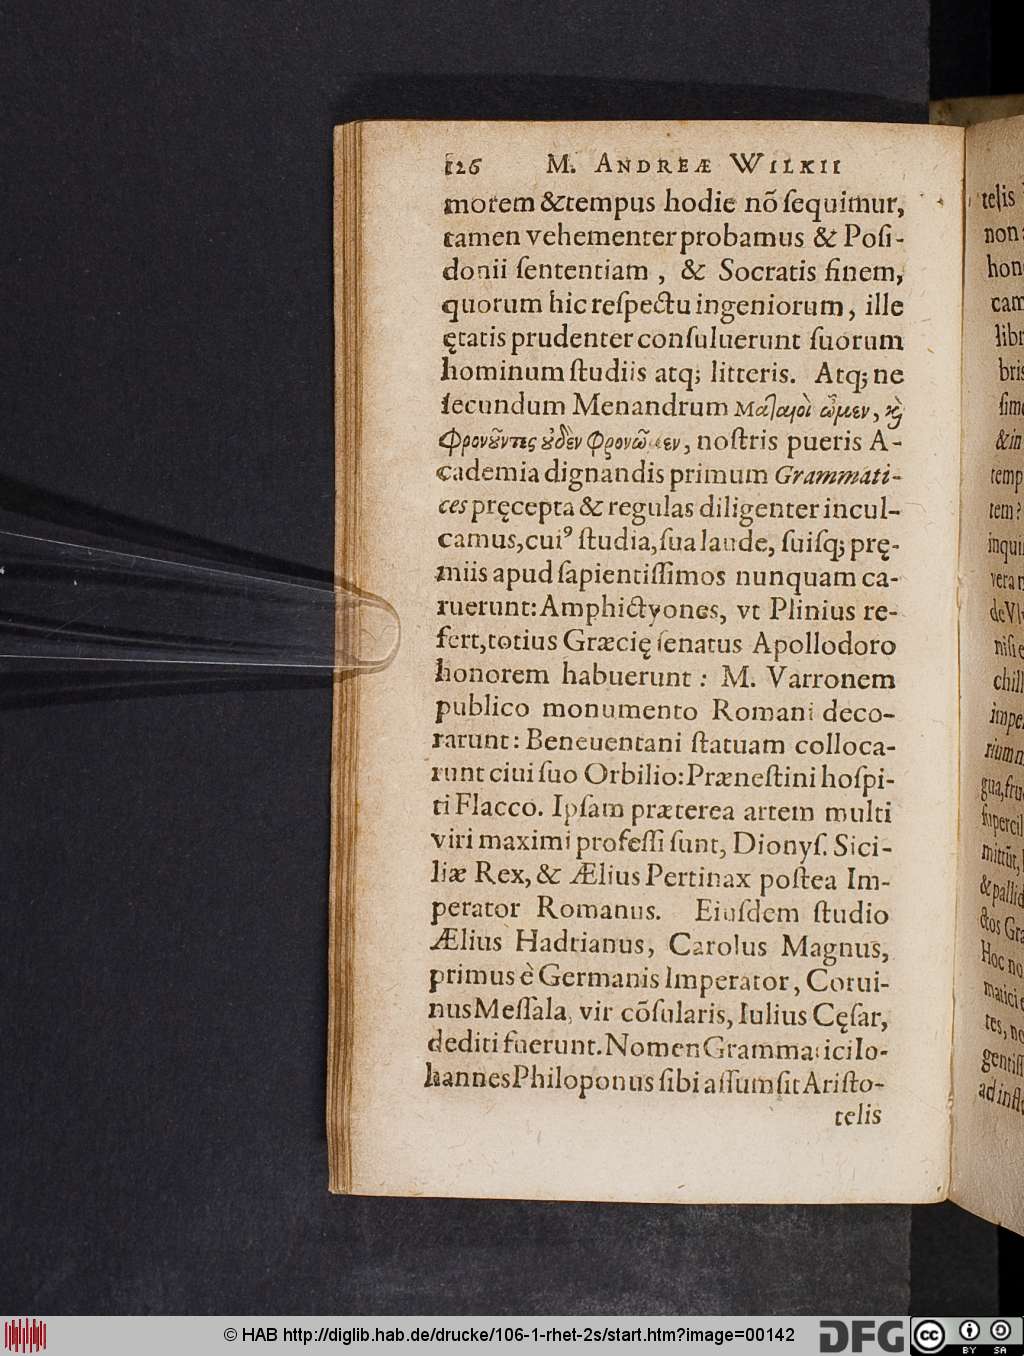 126 M. ANDREÆ WILKII
morem & tempus hodie nõ ſequimur,
tamen vehementer probamus & Poſi-
donii ſententiam, & Socratis finem,
quorum hic reſpectu ingeniorum, ille
ętatis prudenter conſuluerunt ſuorum
hominum ſtudiis atq; litteris. Atq; ne
ſecundum Menandrum ὦμεν, ϗ̀
Φρονοῦντες ȣ̓δὲν Φρονῶμεν, noſtris pueris A-
cademia dignandis primum Grammati-
ces pręcepta & regulas diligenter incul-
camus, cuiꝰ ſtudia, ſua laude, ſuiſq; prę-
miis apud ſapientiſſimos nunquam ca-
ruerunt: Amphictyones, vt Plinius re-
fert, totius Græcię ſenatus Apollodoro
honorem habuerunt: M. Varronem
publico monumento Romani deco-
rarunt: Beneuentani ſtatuam colloca-
runt ciui ſuo Orbilio: Præneſtini hoſpi-
ti Flacco. Ipſam præterea artem multi
viri maximi profeſſi ſunt, Dionyſ. Sici-
liæ Rex, & Ælius Pertinax poſtea Im-
perator Romanus. Eiuſdem ſtudio
Ælius Hadrianus, Carolus Magnus,
primus è Germanis Imperator, Corui-
nus Meſſala, vir cõſularis, Iulius Cęſar,
dediti fuerunt. Nomen Grammatici Io-
hannes Philoponus ſibi aſſumſit Ariſto-
telis
telis
non
hon
cam
libr
bris
ſim
& in
temp
tem?
inqui
vera
de Vl
niſi e
chill
impe
rium
gua, fru
ſupercil
mittũt,
& pallid
ctos Gra
Hoc no
matici e
tes, no
gentiſſ
ad infl
© HAB http://diglib.hab.de/drucke/106-1-rhet-2s/start.htm?image=00142
DFG
cc BY SA